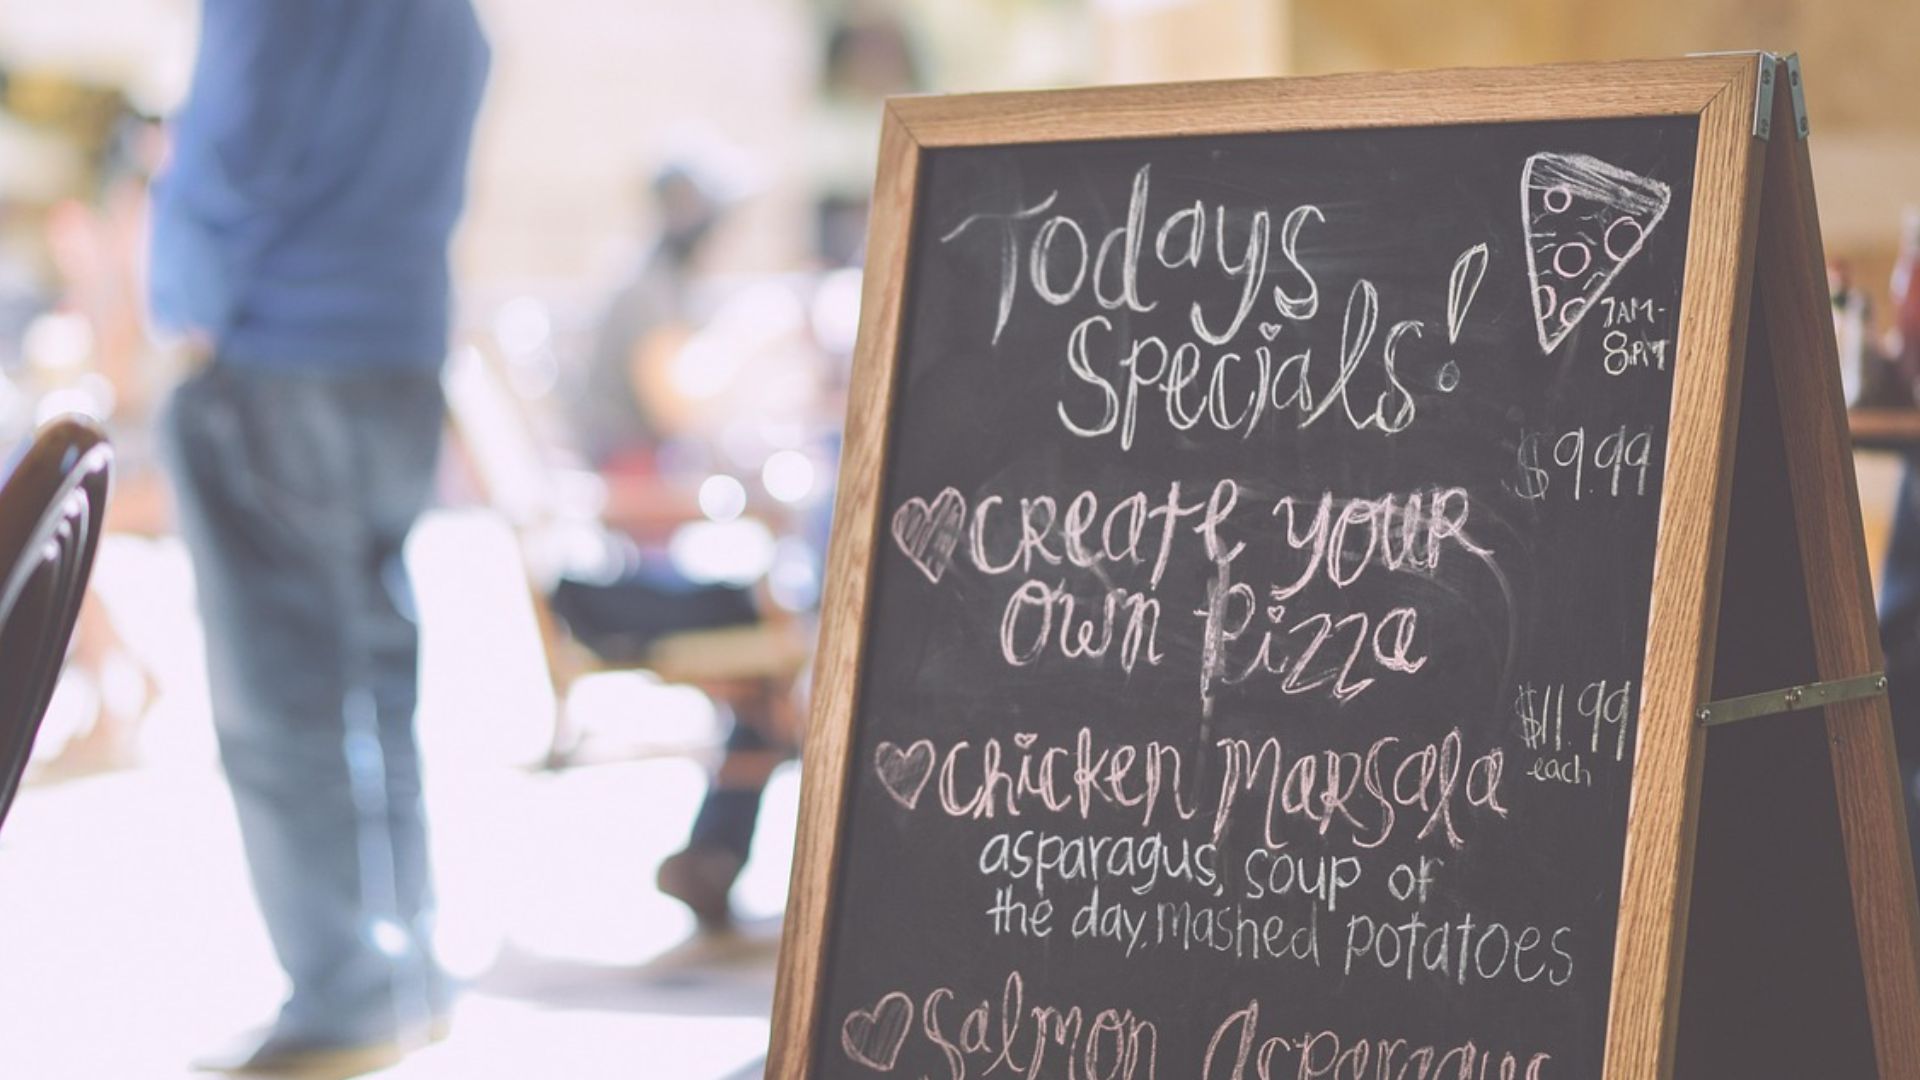 Todays
Specials!
7AM-
8PM
$9.99
create your
Own Pizza
$11.99
each
Chicken Marsala
asparagus, soup of
the day, mashed potatoes
Salmon Asparagus